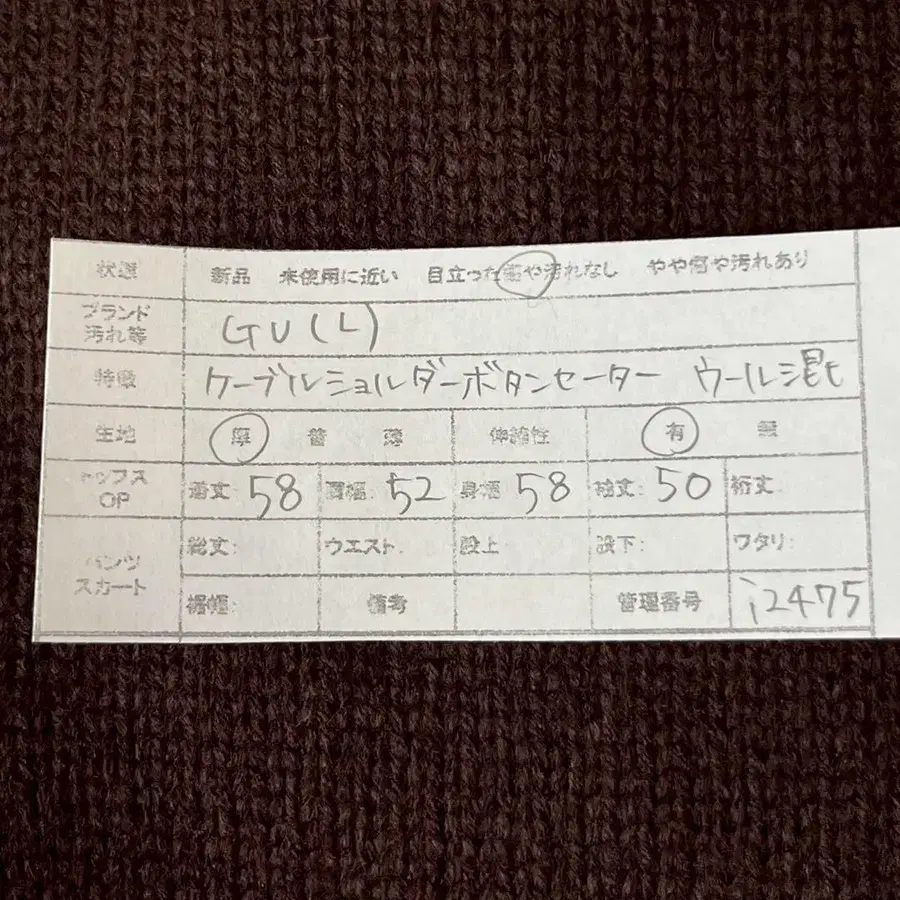 状態 新品 未使用に近い 目立った傷や汚れなし やや傷や汚れあり
ブランド
汚れ等 GU(L)
特徴 ケーブルショルダーボタンセーター ウール混
生地 厚 普 薄 伸縮性 有 無
トップス
OP 着丈: 58 肩幅: 52 身幅: 58 袖丈: 50 裄丈:
パンツ
スカート 総丈: ウエスト: 股上: 股下: ワタリ:
裾幅: 備考 管理番号 i2475